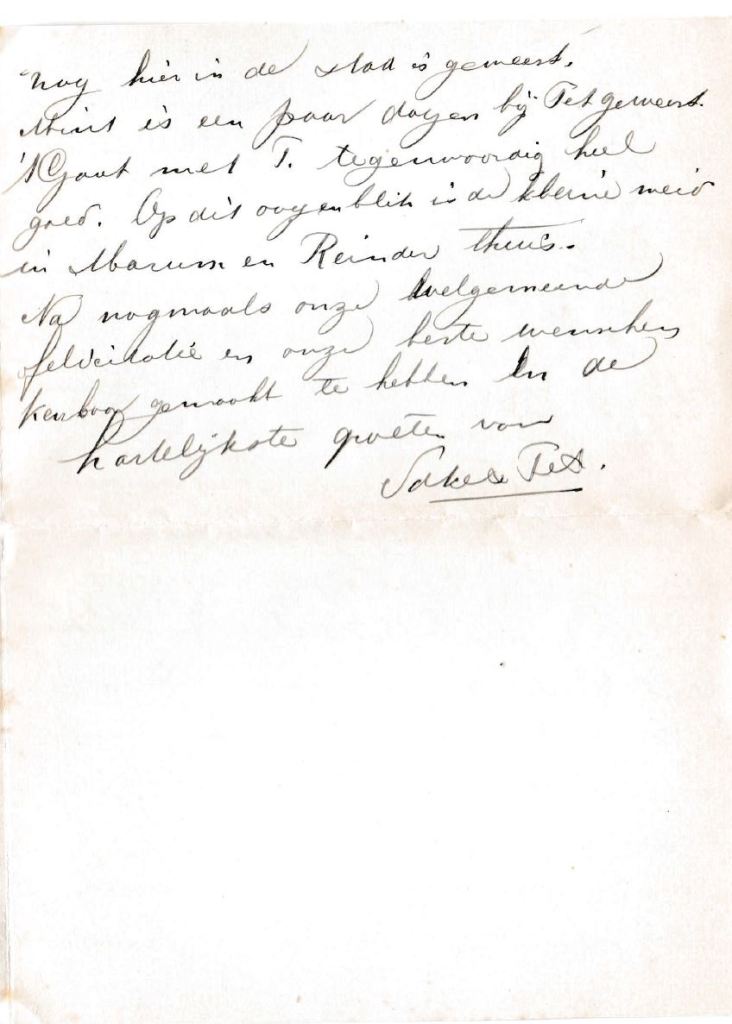 nog hier in de stad is geweest.
Mint is een paar dagen bij Tet geweest.
't Gaat met T. tegenwoordig heel
goed. Op dit oogenblik is de kleine meid
in Marum en Reinder thuis.
Na nogmaals onze welgemeende
felicitatie en onze beste wenschen
kenbaar gemaakt te hebben en de
hartelijkste groeten van
Sake & Tet.